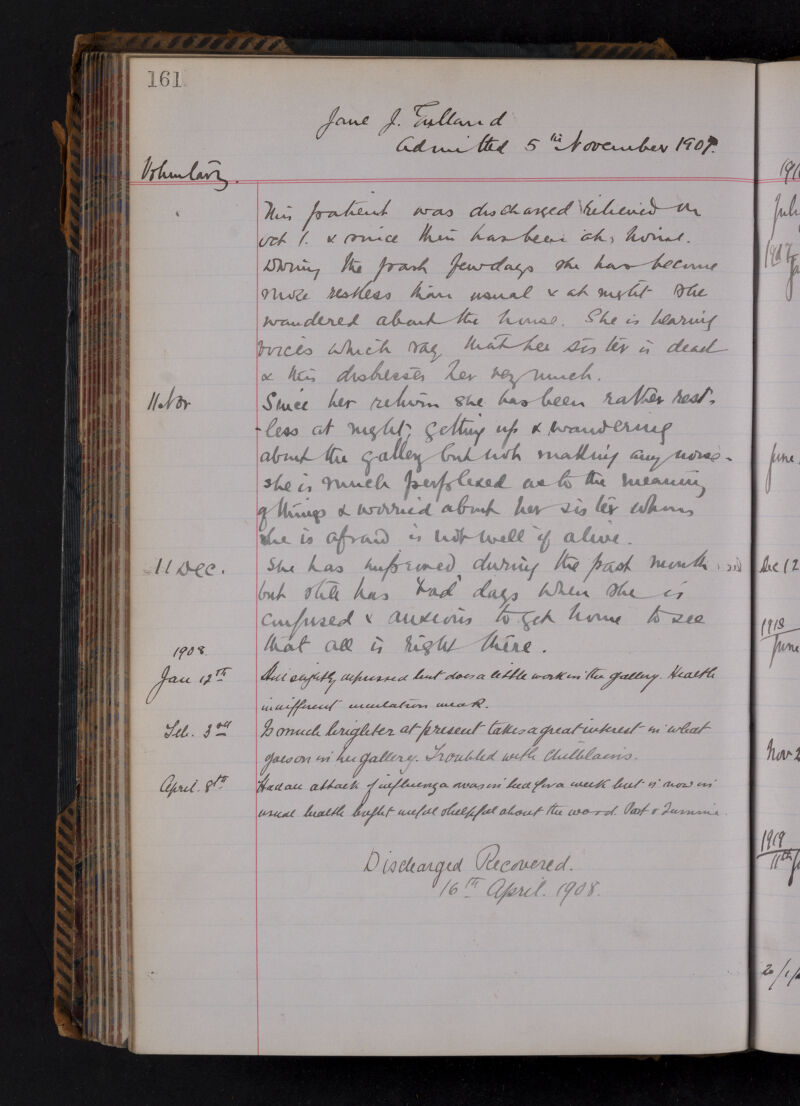 161
Jane J.
Admitted 5th November 1907.
Voluntary.
This patient was discharged relieved on
Oct 1. & since then has been at home.
During the past few days she has become
more restless than usual & at night she
wandered about the house. She is hearing
voices which say that her sister is dead
& this distresses her very much.
11 Nov
Since her return she has been rather rest-
-less at night, getting up & wandering
about the gallery but not making any noise.
She is much perplexed as to the meaning
of things & worried about her sister whom
she is afraid is not well if alive.
11 Dec.
She has improved during the past month
but still has bad days when she is
confused & anxious to get home to see
that all is right there.
1908
Jan 12th
Still slightly depressed but does a little work in the gallery. Health
indifferent circulation weak.
Feb. 3rd
Is much brighter at present takes a great interest in what
goes on in her gallery. Troubled with Chilblains.
April. 8th
Had an attack of influenza & was in bed for a week but is now in
usual health bright useful & helpful about the ward.
Discharged Recovered.
16th April. 1908.
191
July
June
Dec 12
1918
June
Nov 2
1919
11th
20/1/